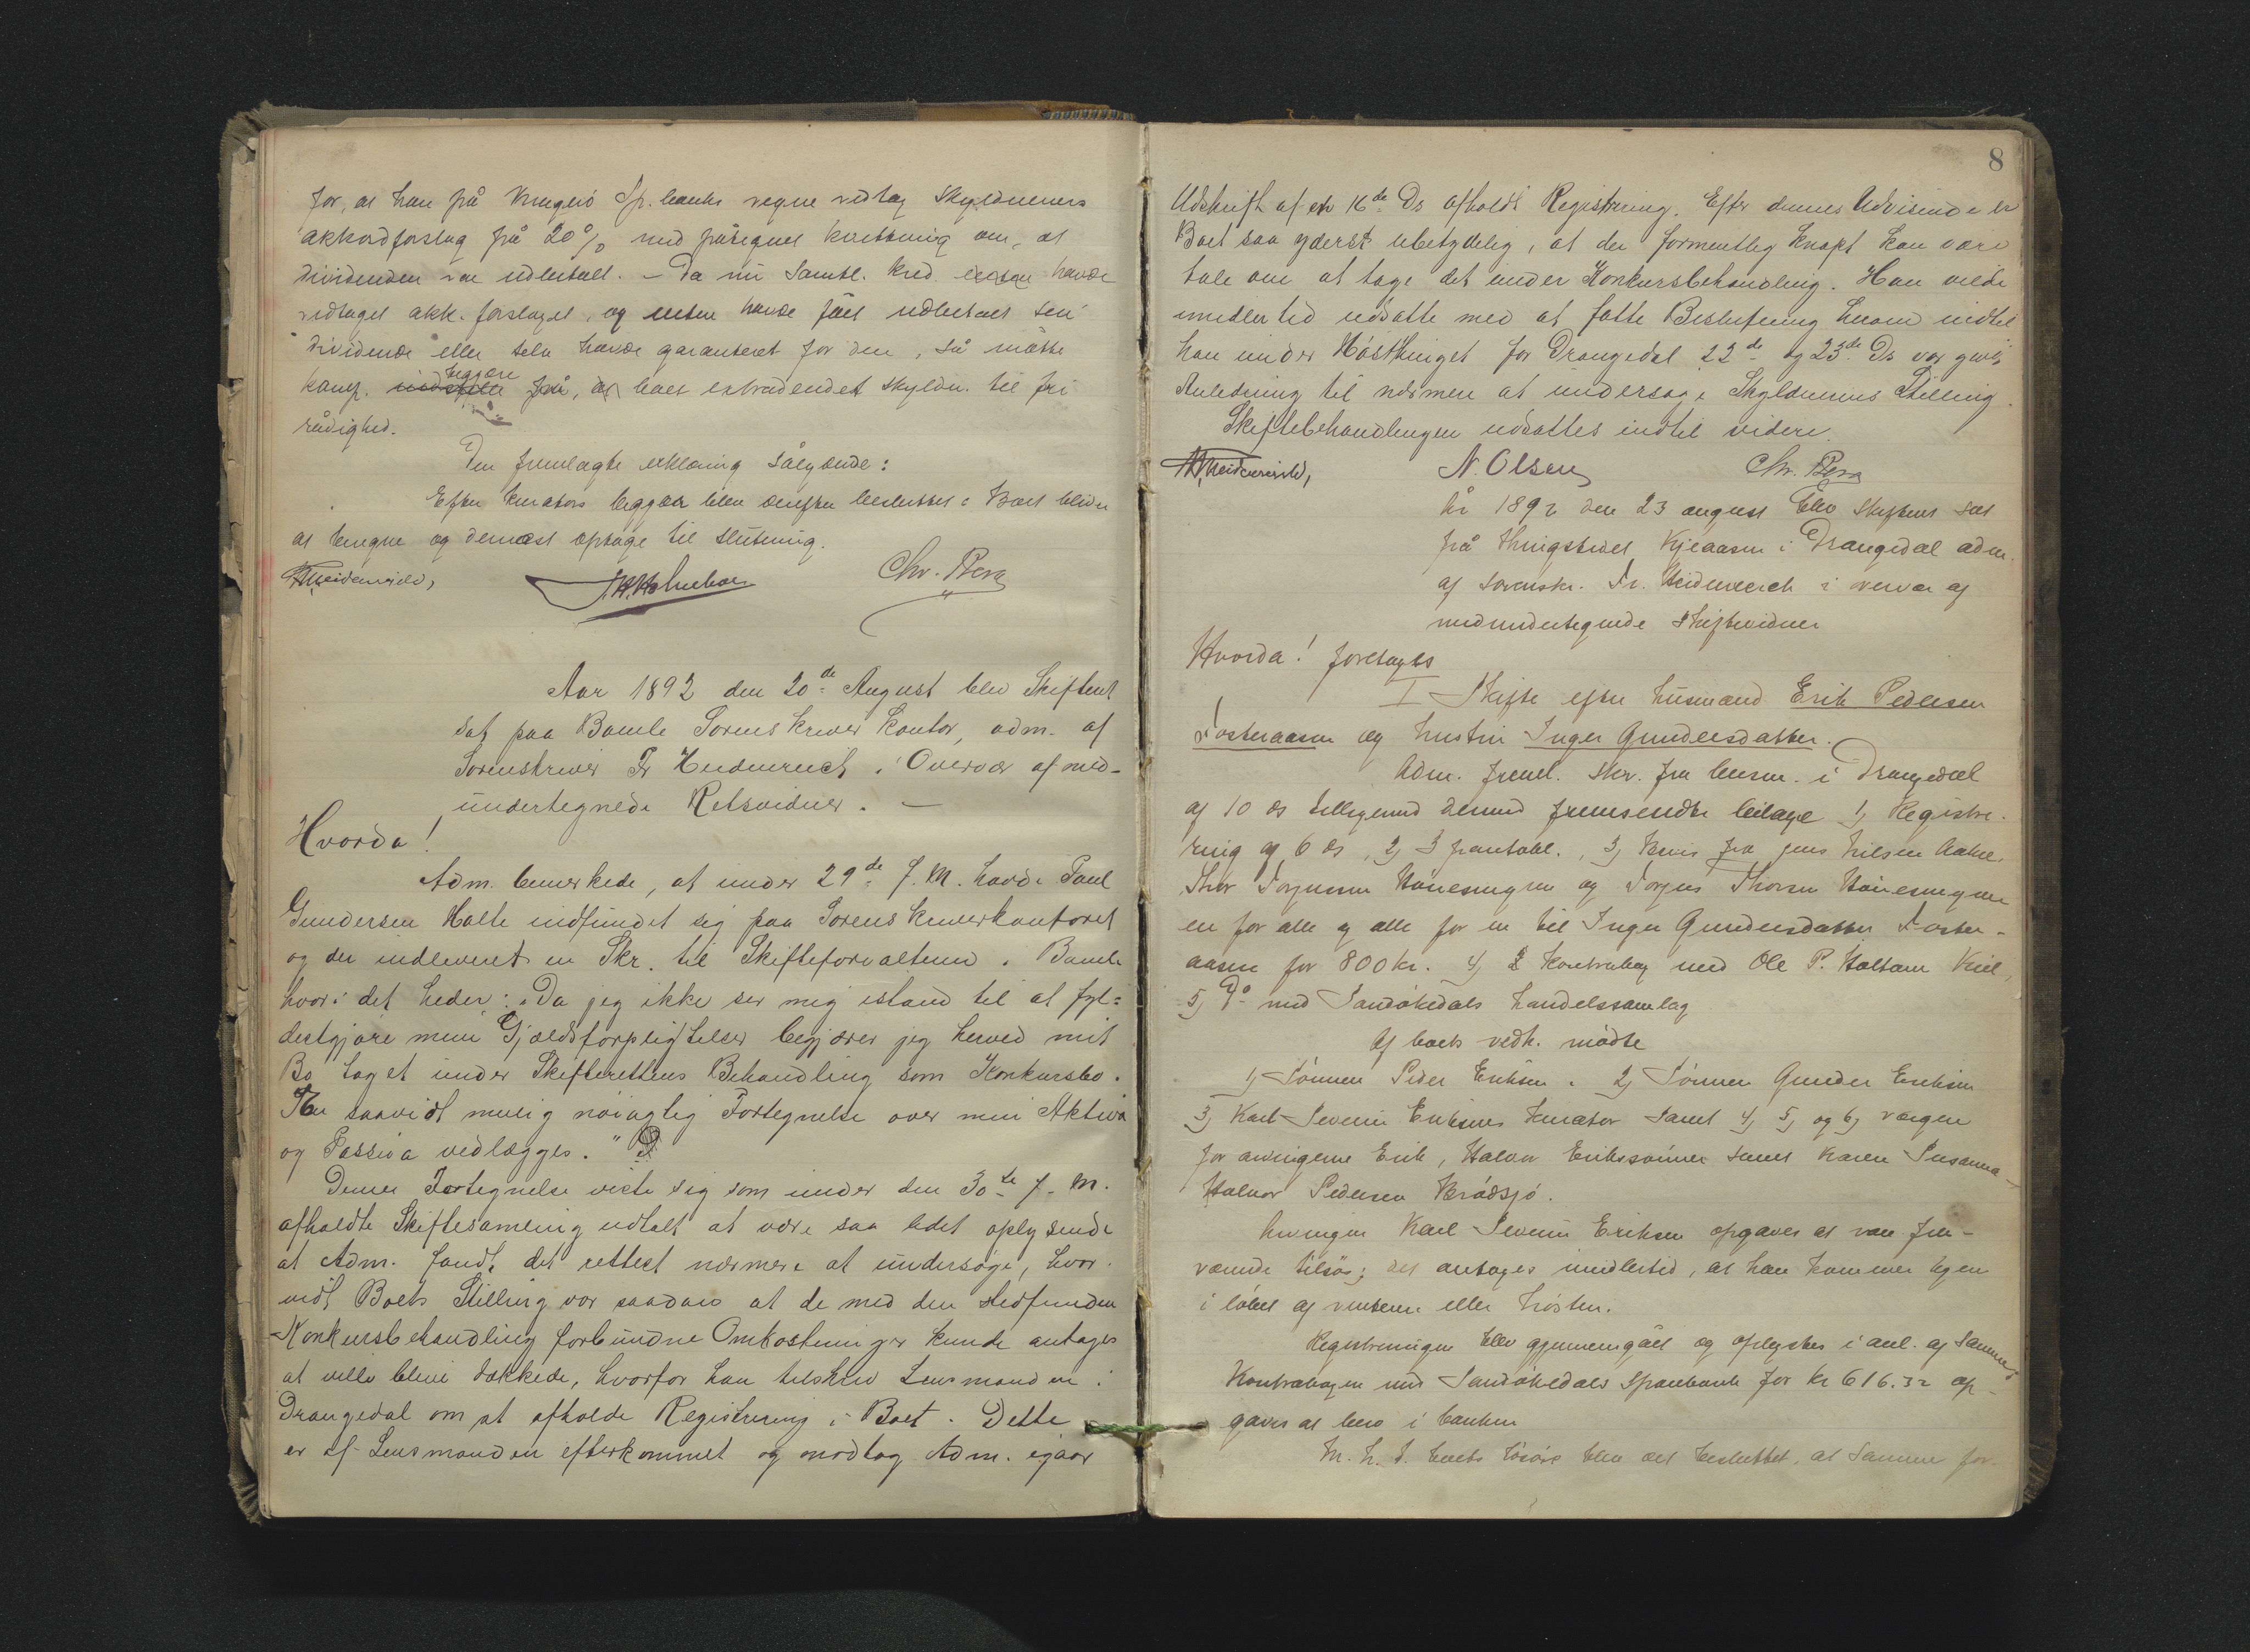 for, at han på Kragerø Sp.banks vegne vedtog skyldnerens
akkordforslag på 20% med påtegnet kvittering om, at
dividenden var udbetalt. – Da nu samtl. kred. havde
vedtaget akk. forslaget, og enten havde fået udbetalt sin
dividende eller selv havde garanteret for den, så måtte
begjære boet extraderet skyldn. til fri
rådighed.
Den fremlagte erklæring sålydende:
Efter kurators begjær blev derefter besluttet: Boet bliver
at beregne og dernæst optage til slutning.
Heidenreich, Chr. Berg
Aar 1892 den 20de August blev Skifteret
sat paa Bamle Sorenskriver Kontor, adm. af
Sorenskriver Fr Heidenreich i Overvær af med-
undertegnede Retsvidner. –
Hvorda!
Adm. bemerkede, at under 29de f. M. havde Paul
Gundersen Holte indfundet sig paa Sorenskriverkontoret
og der indleveret en Skr. til Skifteforvalteren i Bamle
hvori det heder: "Da jeg ikke ser mig istand til at fyl=
destgjøre mine Gjældsforpligtelser begjærer jeg herved mit
Bo taget under Skifterettens Behandling som Konkursbo.
En saavidt mulig nøiagtig Fortegnelse over min Aktiva
og Passiva vedlægges."
Denne Fortegnelse viste sig som under den 30te f. M.
afholdte Skiftesamling udtalt at være saa lidet oplysende
at Adm. fandt det rettest nærmere at undersøge, hvor-
vidt Boets Stilling var saadan at de med den stedfunden
Konkursbehandling forbundne Omkostninger kunde antages
at ville blive dækkede, hvorfor han tilskrev Lensmanden i
Drangedal om at afholde Registrering i Boet. Dette
er af Lensmanden efterkommet og modtog Adm. igaar
8
Udskrift af en 16de Ds afholdt Registrering. Efter dennes Udvisende er
Boet saa yderst ubetydelig, at der formentlig knapt kan være
tale om at tage det under Konkursbehandling. Han vilde
imidlertid udsætte med at fatte Beslutning herom indtil
han under Høstthinget for Drangedal 22de og 23de Ds var givet
Anledning til nærmere at undersøge Skyldnerens Stilling.
Skiftebehandlingen udsattes indtil videre.
Heidenreich, N. Olsen Chr. Berg
År 1892 den 23 august blev skifteret sat
på thingstedet Kjeaasen i Drangedal adm.
af sorenskr. Fr. Heidenreich i overvær af
medundertegnede skiftevidner
Hvorda! foretages
I Skifte efter husmand Erik Pedersen
Fosteraasen og hustru Inger Gundersdatter.
Adm. freml. skr. fra lensm. i Drangedal
af 10 ds tilligemed dermed fremsendte bilage 1, Registre-
ring af 6 ds, 2, 3, Bevis fra Jens Nilsen
Thor Torjussen og Torjus Thorsen
en for alle og alle for en til Inger Gundersdatter Foster-
aasen for 800 kr. 4, 2 kontrabog med Ole P. Holtane
5, Do med Sandøkedals handelssamlag
Af boets vedk. mødte
1, Sønnen Peder Eriksen. 2, Sønnen Gunder Eriksen
3, Karl Severin Eriksens kurator samt 4, 5, og 6, værgen
for arvingerne Erik, Halvor Erikssønner samt Karen Susanna –
Halvor Pedersen Brødsjø.
Arvingen Karl Severin Eriksen opgaves at være fra-
værende tilsøs; det antages imidlertid, at han kommer igjen
i løbet af vinteren eller høsten.
Registreringen blev gjennemgået og oplystes i anl. af samme
Kontrabogen med Sandøkedals Sparebank for kr 616.32 op-
gaves at bero i banken
M. H. t. boets løsøre blev det besluttet, at samme for-